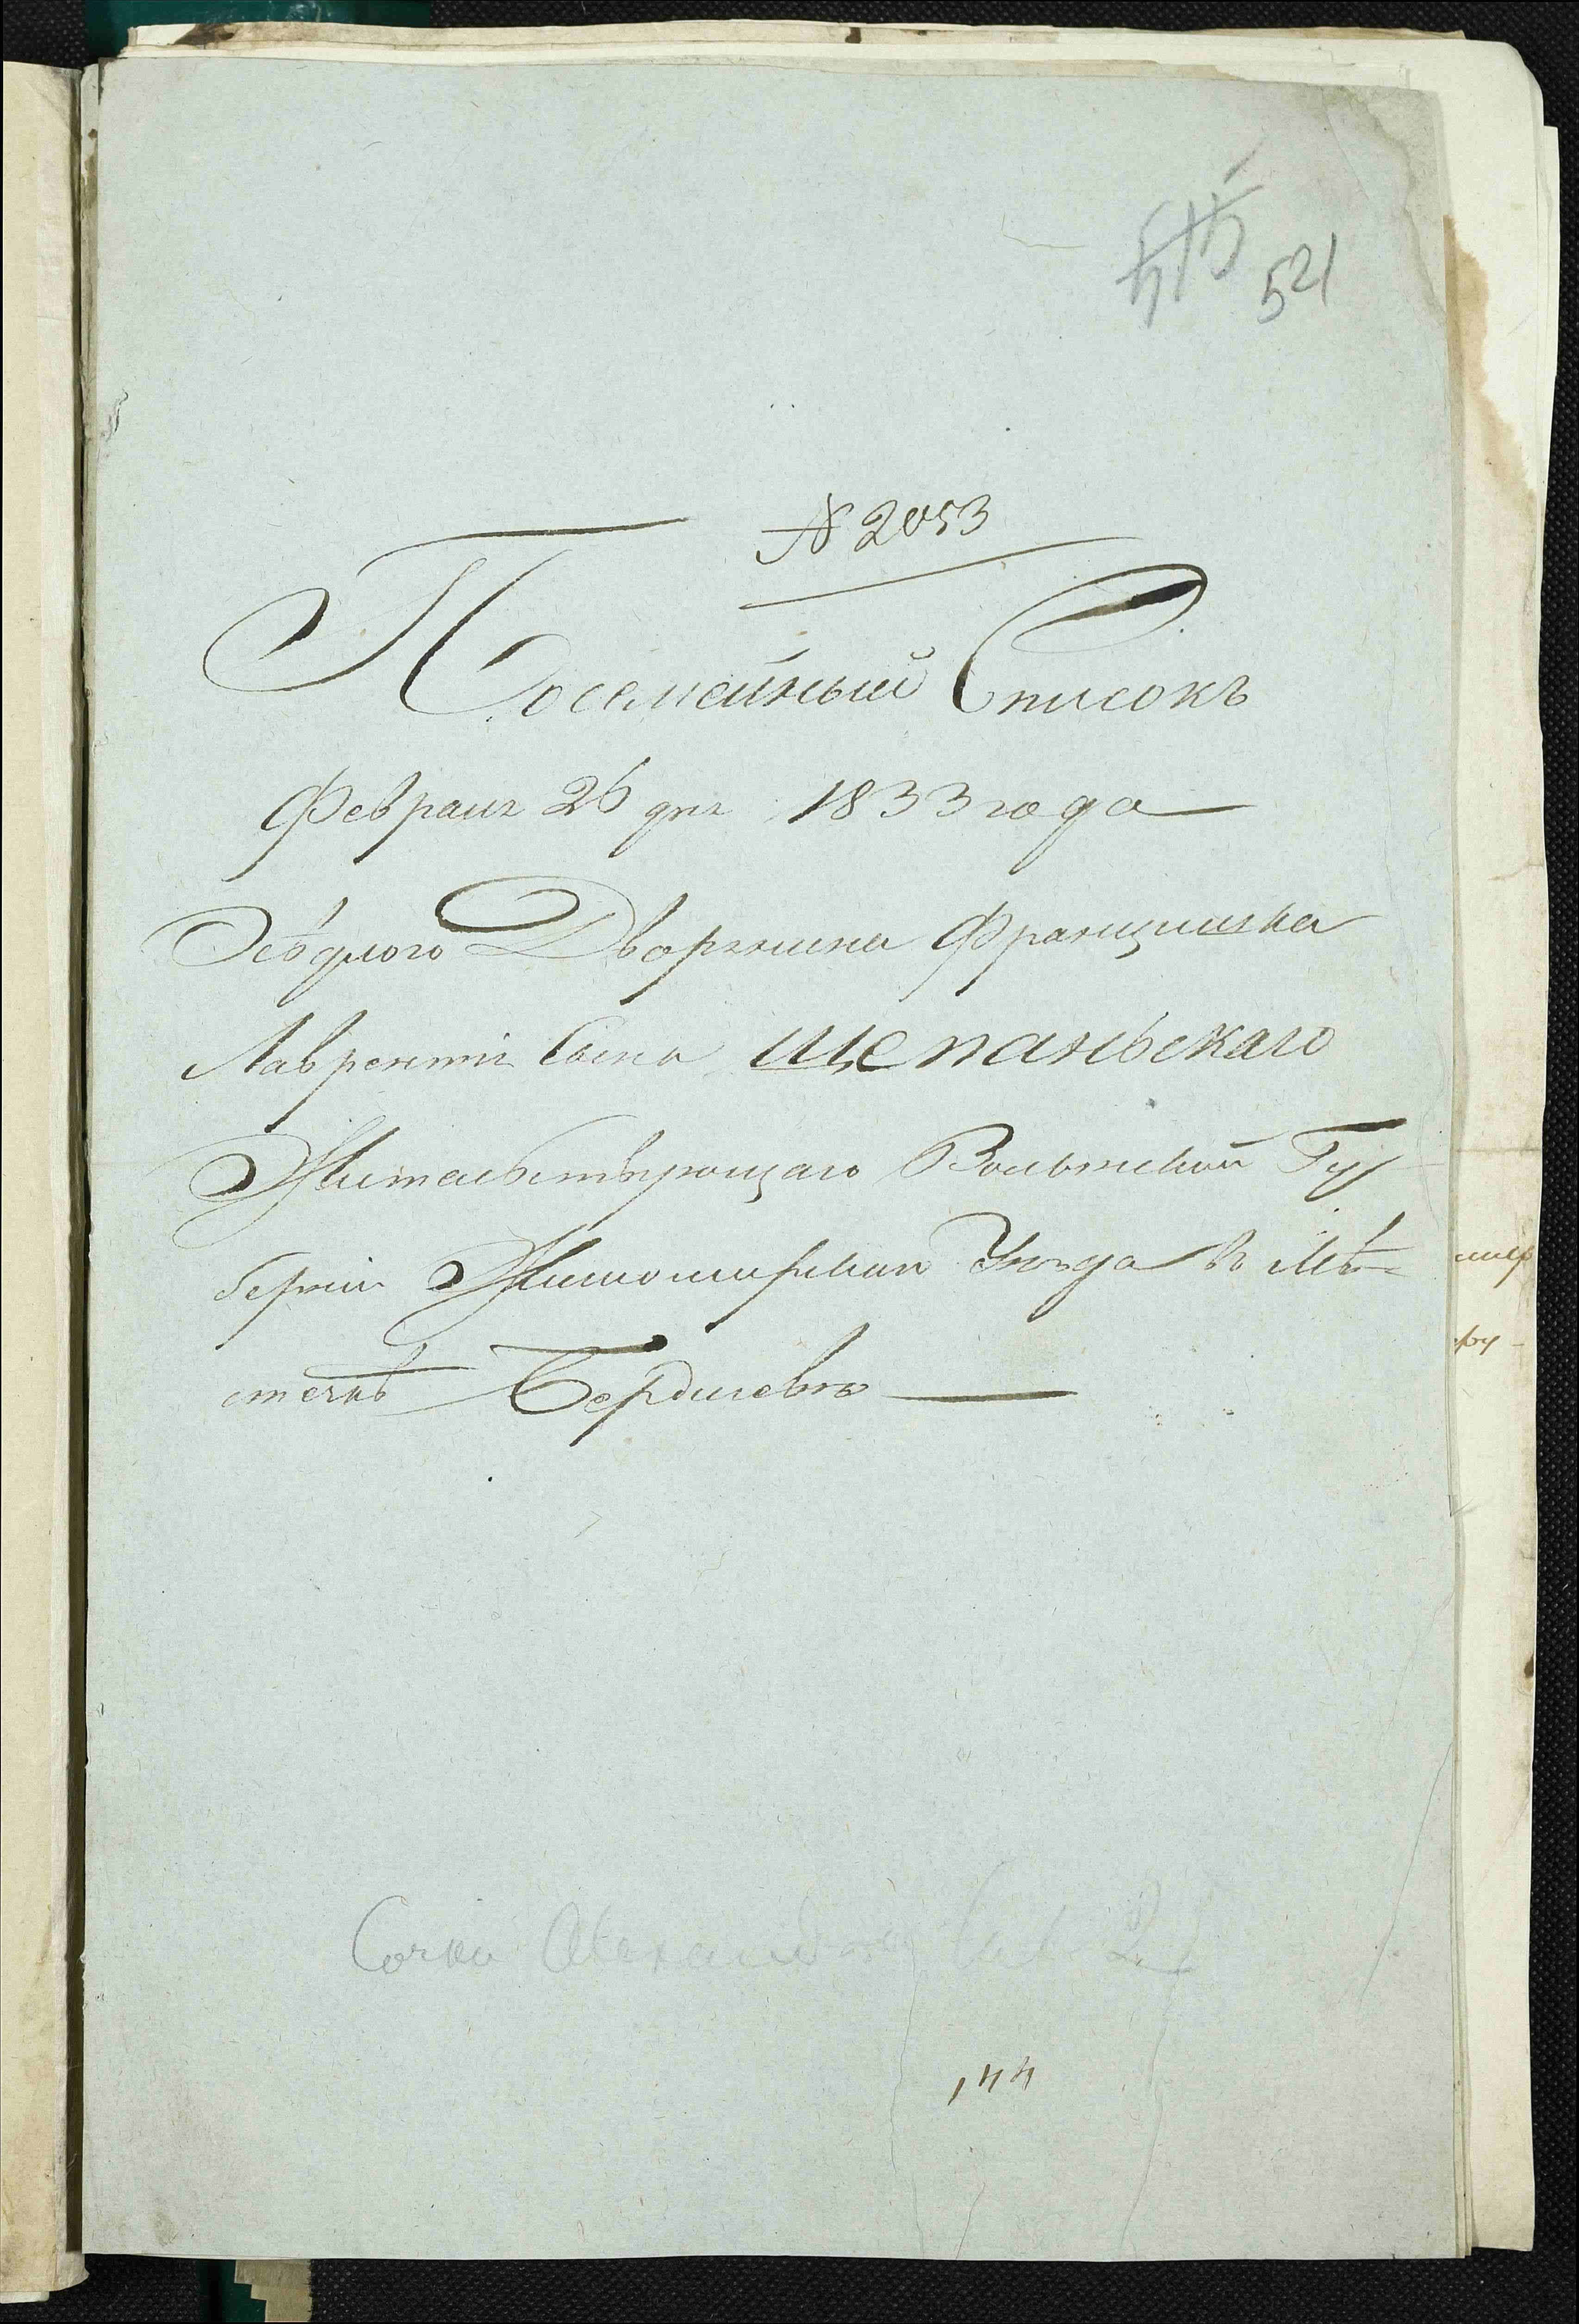 515 521
№ 2053
Посемейный Списокъ
Февраля 26 дня 1833 года
Осѣдлого Дворянина Францишка
Лаврентія Сына Щепаньскаго
Жительствующаго Волынской Гу
берніи Житомирскаго Уѣзда въ Мѣ-
стечкѣ Бердичевѣ
144